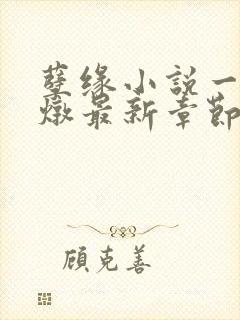 孽缘小說一
燉最新章節
顾克善